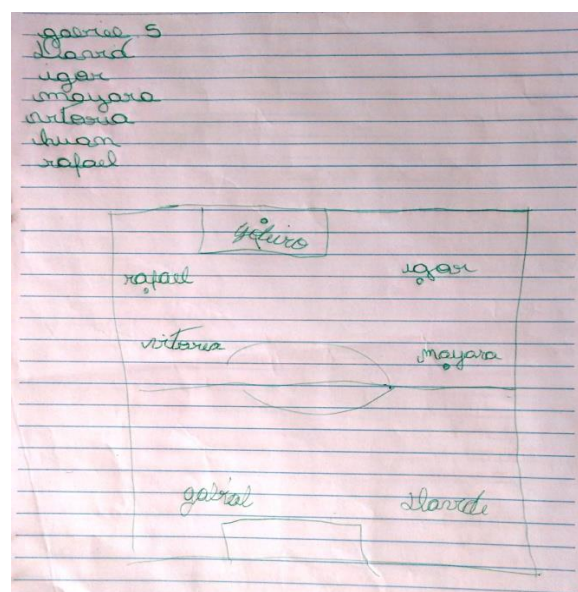 gabriel S
David
igor
mayara
vitoria
huan
rafael
goleiro
rafael igor
vitoria mayara
gabriel Davide